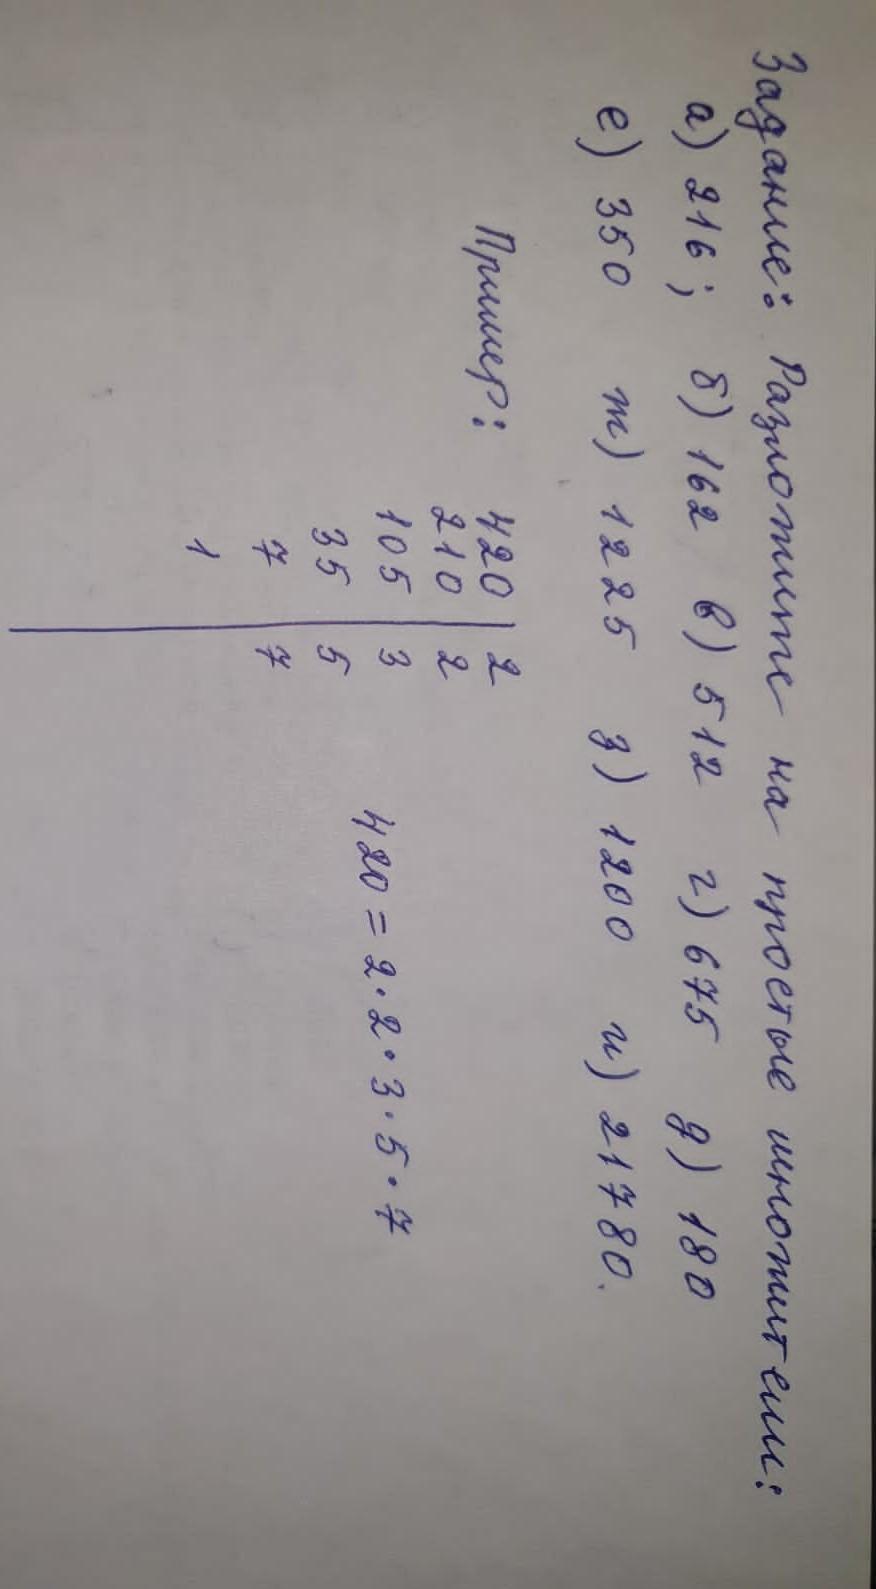 Задание: Разложите на простые множители:
а) 216; б) 162 в) 512 г) 675 д) 180
е) 350 ж) 1225 з) 1200 и) 21780.
Пример: 420 | 2
210 | 2
105 | 3
35 | 5
7 | 7
1
420 = 2·2·3·5·7